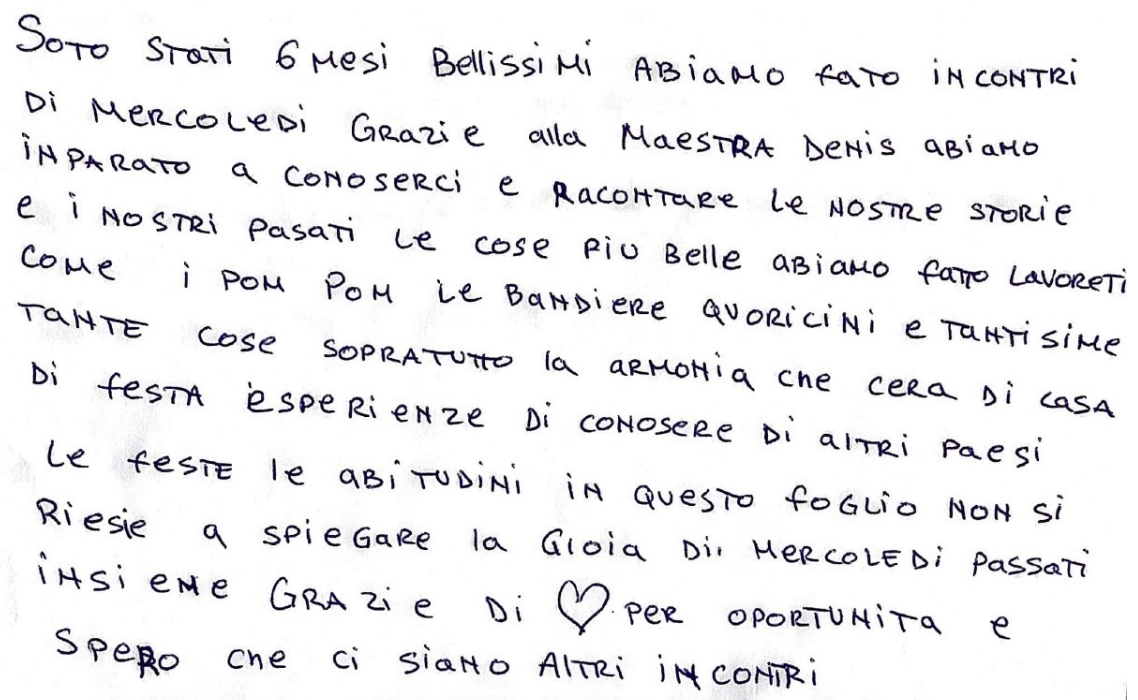 SOTO STATI 6 MESI BELLISSIMI ABIAMO FATO INCONTRI
DI MERCOLEDI GRAZIE alla MAESTRA DENIS ABIAMO
INPARATO a CONOSERCI e RACONTARE LE NOSTRE STORIE
e i NOSTRI PASATI LE COSE PIU BELLE ABIAMO FATTO LAVORETI
COME i POM POM LE BANDIERE QUORICINI e TANTISIME
TANTE COSE SOPRATUTTO la ARMONIA CHE CERA DI CASA
DI FESTA ESPERIENZE DI CONOSERE DI ALTRI PAESI
LE FESTE le ABITUDINI IN QUESTO FOGLIO NON SI
RIESIE a SPIEGARE la GIOIA DI MERCOLEDI PASSATI
INSIEME GRAZIE DI ♡ PER OPORTUNITA e
SPERO CHE CI SIANO ALTRI INCONTRI